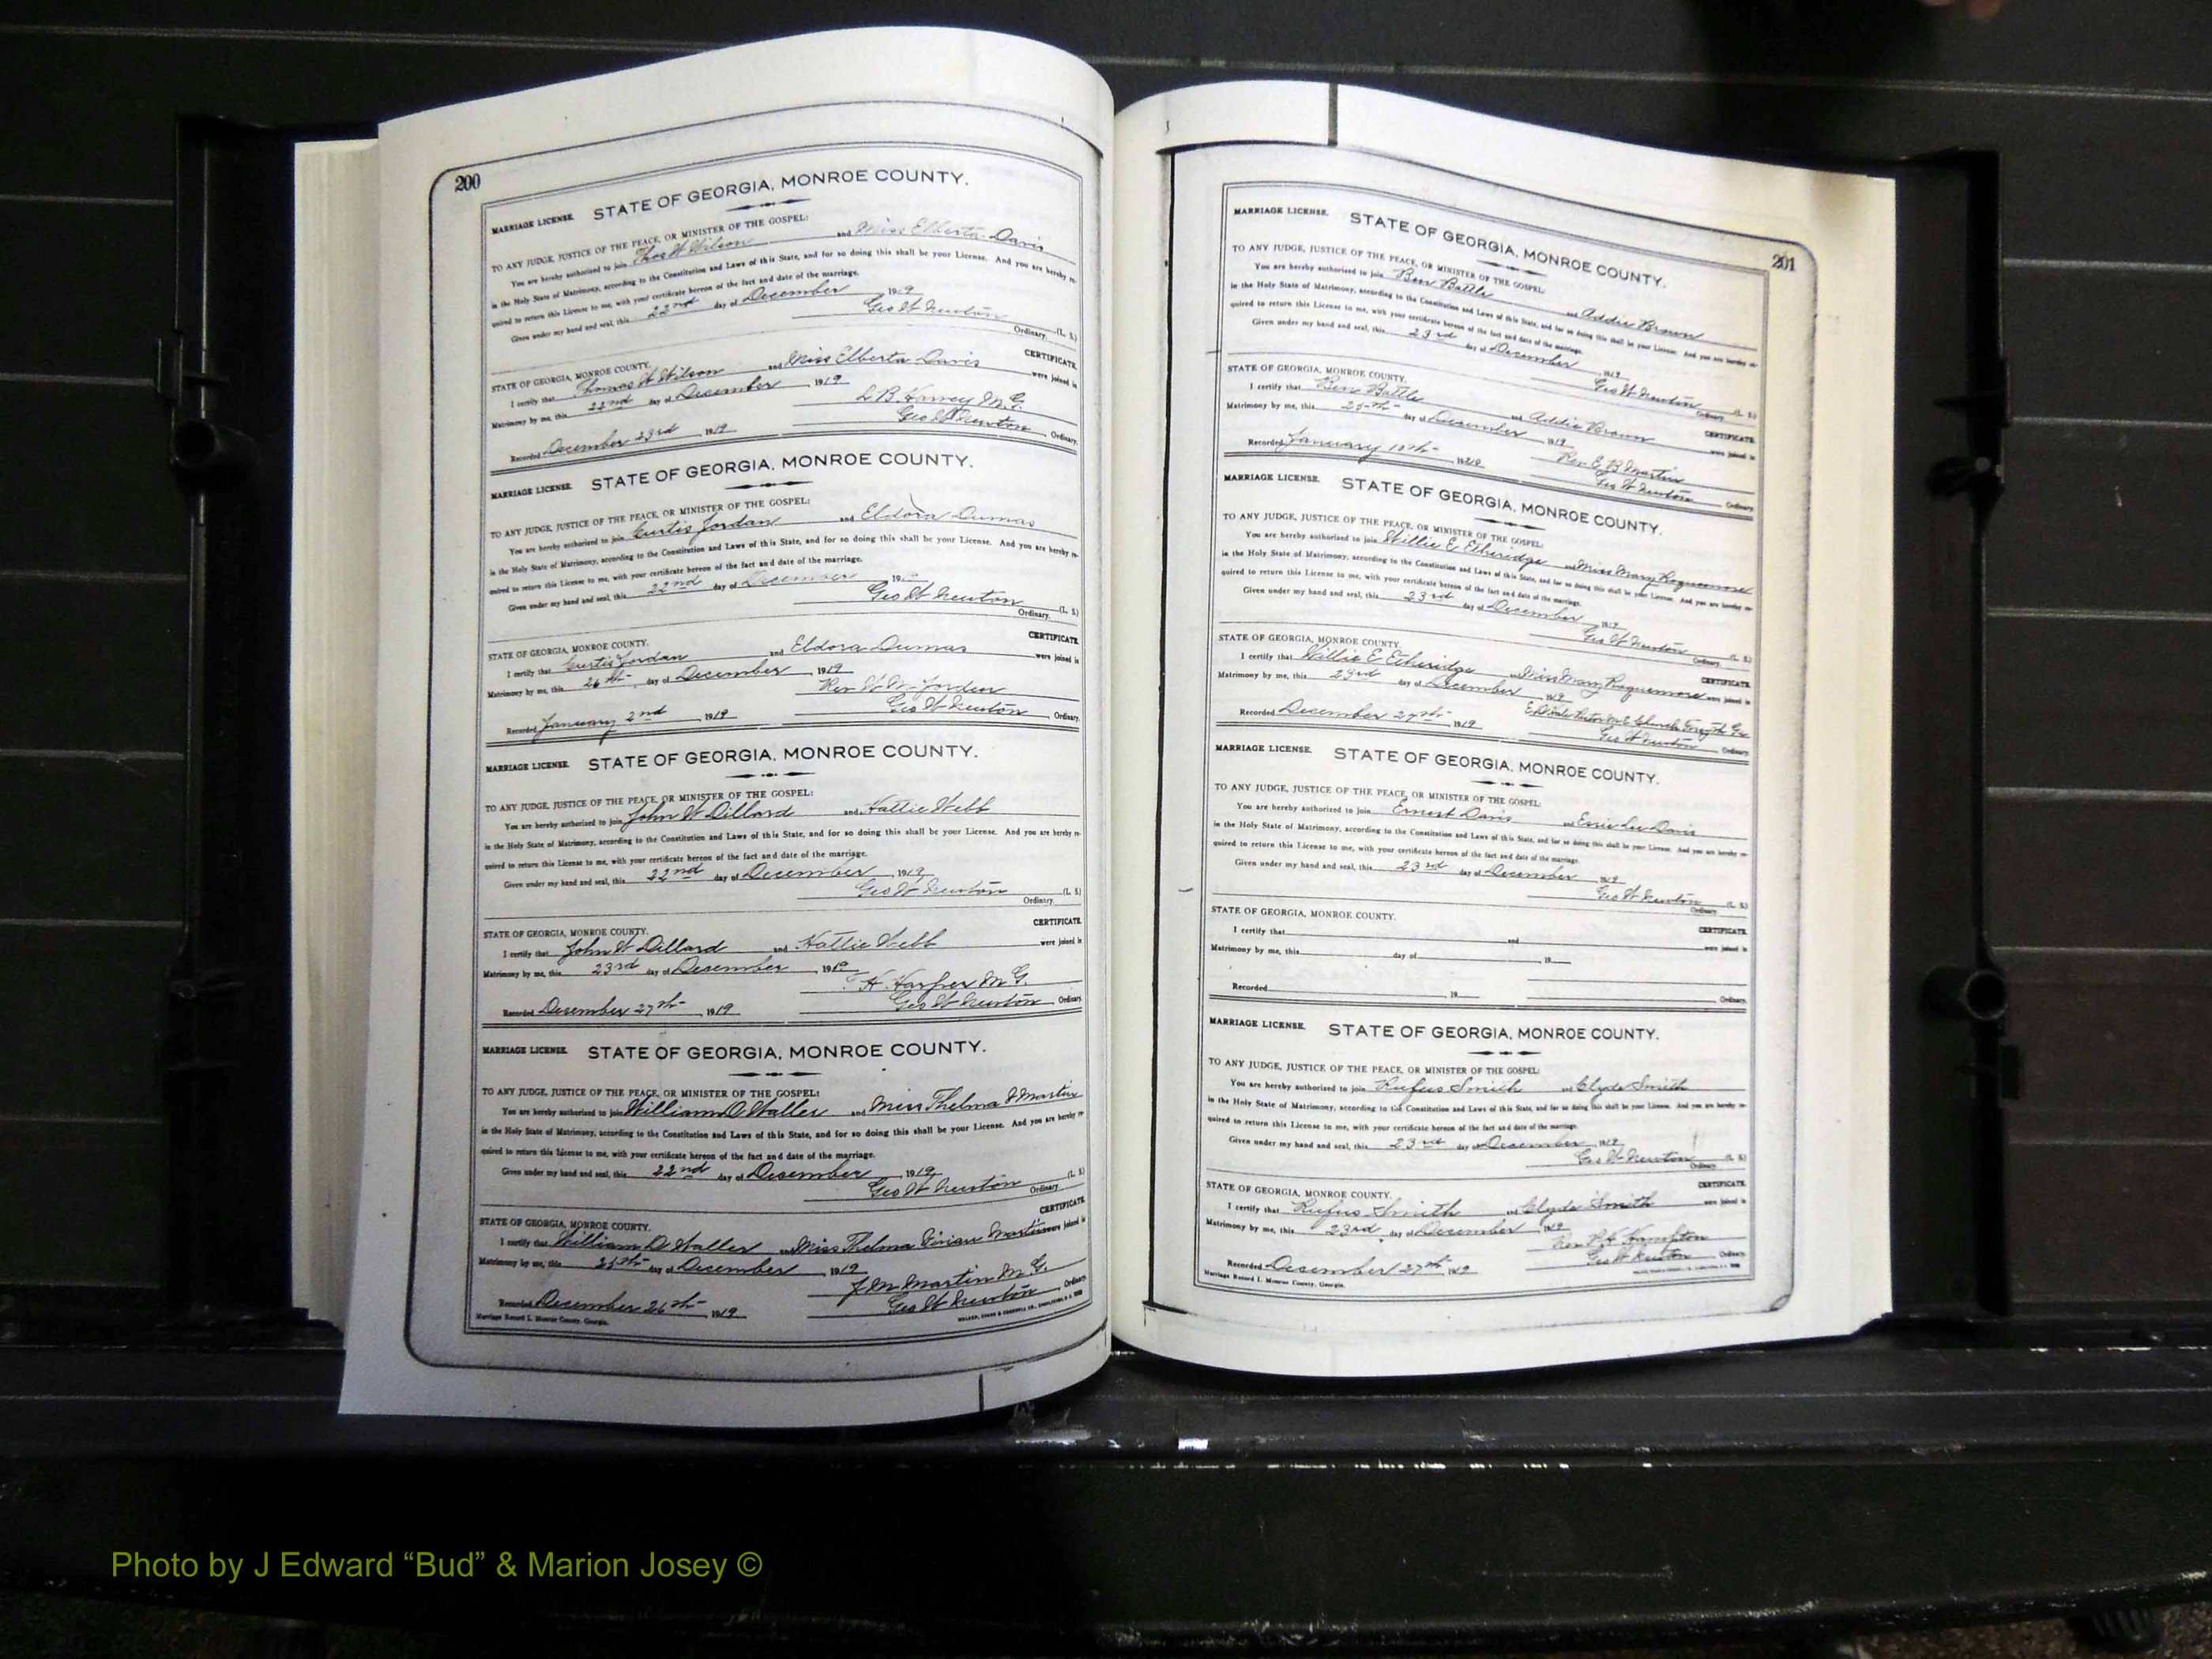 200
MARRIAGE LICENSE. STATE OF GEORGIA, MONROE COUNTY.
TO ANY JUDGE, JUSTICE OF THE PEACE, OR MINISTER OF THE GOSPEL:
You are hereby authorized to join Thos W Wilson and Miss Elberta Davis
in the Holy State of Matrimony, according to the Constitution and Laws of this State, and for so doing this shall be your License. And you are hereby re-
quired to return this License to me, with your certificate hereon of the fact and date of the marriage.
Given under my hand and seal, this 22nd day of December 1919
Geo W Newton (L. S.)
Ordinary.
STATE OF GEORGIA, MONROE COUNTY. CERTIFICATE.
I certify that Thomas W Wilson and Miss Elberta Davis were joined in
Matrimony by me, this 22nd day of December, 1919
L B. Harvey M. G.
Recorded December 23rd, 1919 Geo W Newton Ordinary.
MARRIAGE LICENSE. STATE OF GEORGIA, MONROE COUNTY.
TO ANY JUDGE, JUSTICE OF THE PEACE, OR MINISTER OF THE GOSPEL:
You are hereby authorized to join Curtis Jordan and Eldora Dumas
in the Holy State of Matrimony, according to the Constitution and Laws of this State, and for so doing this shall be your License. And you are hereby re-
quired to return this License to me, with your certificate hereon of the fact and date of the marriage.
Given under my hand and seal, this 22nd day of December 19
Geo W Newton (L. S.)
Ordinary.
STATE OF GEORGIA, MONROE COUNTY. CERTIFICATE.
I certify that Curtis Jordan and Eldora Dumas were joined in
Matrimony by me, this 26th day of December, 1919
Rev W. W. Jorden
Recorded January 2nd, 1919 Geo W Newton Ordinary.
MARRIAGE LICENSE. STATE OF GEORGIA, MONROE COUNTY.
TO ANY JUDGE, JUSTICE OF THE PEACE, OR MINISTER OF THE GOSPEL:
You are hereby authorized to join John W Dillard and Hattie Webb
in the Holy State of Matrimony, according to the Constitution and Laws of this State, and for so doing this shall be your License. And you are hereby re-
quired to return this License to me, with your certificate hereon of the fact and date of the marriage.
Given under my hand and seal, this 22nd day of December, 1919
Geo W Newton (L. S.)
Ordinary.
STATE OF GEORGIA, MONROE COUNTY. CERTIFICATE.
I certify that John W Dillard and Hattie Webb were joined in
Matrimony by me, this 23rd day of December, 1919
H. Harper M. G.
Recorded December 27th, 1919 Geo W Newton Ordinary.
MARRIAGE LICENSE. STATE OF GEORGIA, MONROE COUNTY.
TO ANY JUDGE, JUSTICE OF THE PEACE, OR MINISTER OF THE GOSPEL:
You are hereby authorized to join William D Waller and Miss Thelma V Martin
in the Holy State of Matrimony, according to the Constitution and Laws of this State, and for so doing this shall be your License. And you are hereby re-
quired to return this License to me, with your certificate hereon of the fact and date of the marriage.
Given under my hand and seal, this 22nd day of December, 1919
Geo W Newton (L. S.)
Ordinary.
STATE OF GEORGIA, MONROE COUNTY. CERTIFICATE.
I certify that William D Waller and Miss Thelma Vivian Martin were joined in
Matrimony by me, this 25th day of December, 1919
J. M. Martin M. G.
Recorded December 26th, 1919 Geo W Newton Ordinary.
Marriage Record I. Monroe County, Georgia.
201
MARRIAGE LICENSE. STATE OF GEORGIA, MONROE COUNTY.
TO ANY JUDGE, JUSTICE OF THE PEACE, OR MINISTER OF THE GOSPEL:
You are hereby authorized to join Ben Battle and Addie Brown
in the Holy State of Matrimony, according to the Constitution and Laws of this State, and for so doing this shall be your License. And you are hereby re-
quired to return this License to me, with your certificate hereon of the fact and date of the marriage.
Given under my hand and seal, this 23rd day of December, 1919
Geo W Newton (L. S.)
Ordinary.
STATE OF GEORGIA, MONROE COUNTY. CERTIFICATE.
I certify that Ben Battle and Addie Brown were joined in
Matrimony by me, this 25th day of December, 1919
Rev E. B Martin
Recorded January 10th, 1920 Geo W Newton Ordinary.
MARRIAGE LICENSE. STATE OF GEORGIA, MONROE COUNTY.
TO ANY JUDGE, JUSTICE OF THE PEACE, OR MINISTER OF THE GOSPEL:
You are hereby authorized to join Willie E Etheridge and Miss Mary Roquemore
in the Holy State of Matrimony, according to the Constitution and Laws of this State, and for so doing this shall be your License. And you are hereby re-
quired to return this License to me, with your certificate hereon of the fact and date of the marriage.
Given under my hand and seal, this 23rd day of December, 1919
Geo W Newton (L. S.)
Ordinary.
STATE OF GEORGIA, MONROE COUNTY. CERTIFICATE.
I certify that Willie E Etheridge and Miss Mary Roquemore were joined in
Matrimony by me, this 23rd day of December, 1919
Pastor M. E. Church Forsyth Ga
Recorded December 27th, 1919 Geo W Newton Ordinary.
MARRIAGE LICENSE. STATE OF GEORGIA, MONROE COUNTY.
TO ANY JUDGE, JUSTICE OF THE PEACE, OR MINISTER OF THE GOSPEL:
You are hereby authorized to join Ernest Davis and Essie Lee Davis
in the Holy State of Matrimony, according to the Constitution and Laws of this State, and for so doing this shall be your License. And you are hereby re-
quired to return this License to me, with your certificate hereon of the fact and date of the marriage.
Given under my hand and seal, this 23rd day of December, 1919
Geo W Newton (L. S.)
Ordinary.
STATE OF GEORGIA, MONROE COUNTY. CERTIFICATE.
I certify that and were joined in
Matrimony by me, this day of, 19
Recorded, 19 Ordinary.
MARRIAGE LICENSE. STATE OF GEORGIA, MONROE COUNTY.
TO ANY JUDGE, JUSTICE OF THE PEACE, OR MINISTER OF THE GOSPEL:
You are hereby authorized to join Rufus Smith and Clyde Smith
in the Holy State of Matrimony, according to the Constitution and Laws of this State, and for so doing this shall be your License. And you are hereby re-
quired to return this License to me, with your certificate hereon of the fact and date of the marriage.
Given under my hand and seal, this 23rd day of December, 1919
Geo W Newton (L. S.)
Ordinary.
STATE OF GEORGIA, MONROE COUNTY. CERTIFICATE.
I certify that Rufus Smith and Clyde Smith were joined in
Matrimony by me, this 23rd day of December, 1919
Rev P. H Hampton
Recorded December 27th, 1919 Geo W Newton Ordinary.
Marriage Record I. Monroe County, Georgia.
Photo by J Edward “Bud” & Marion Josey ©